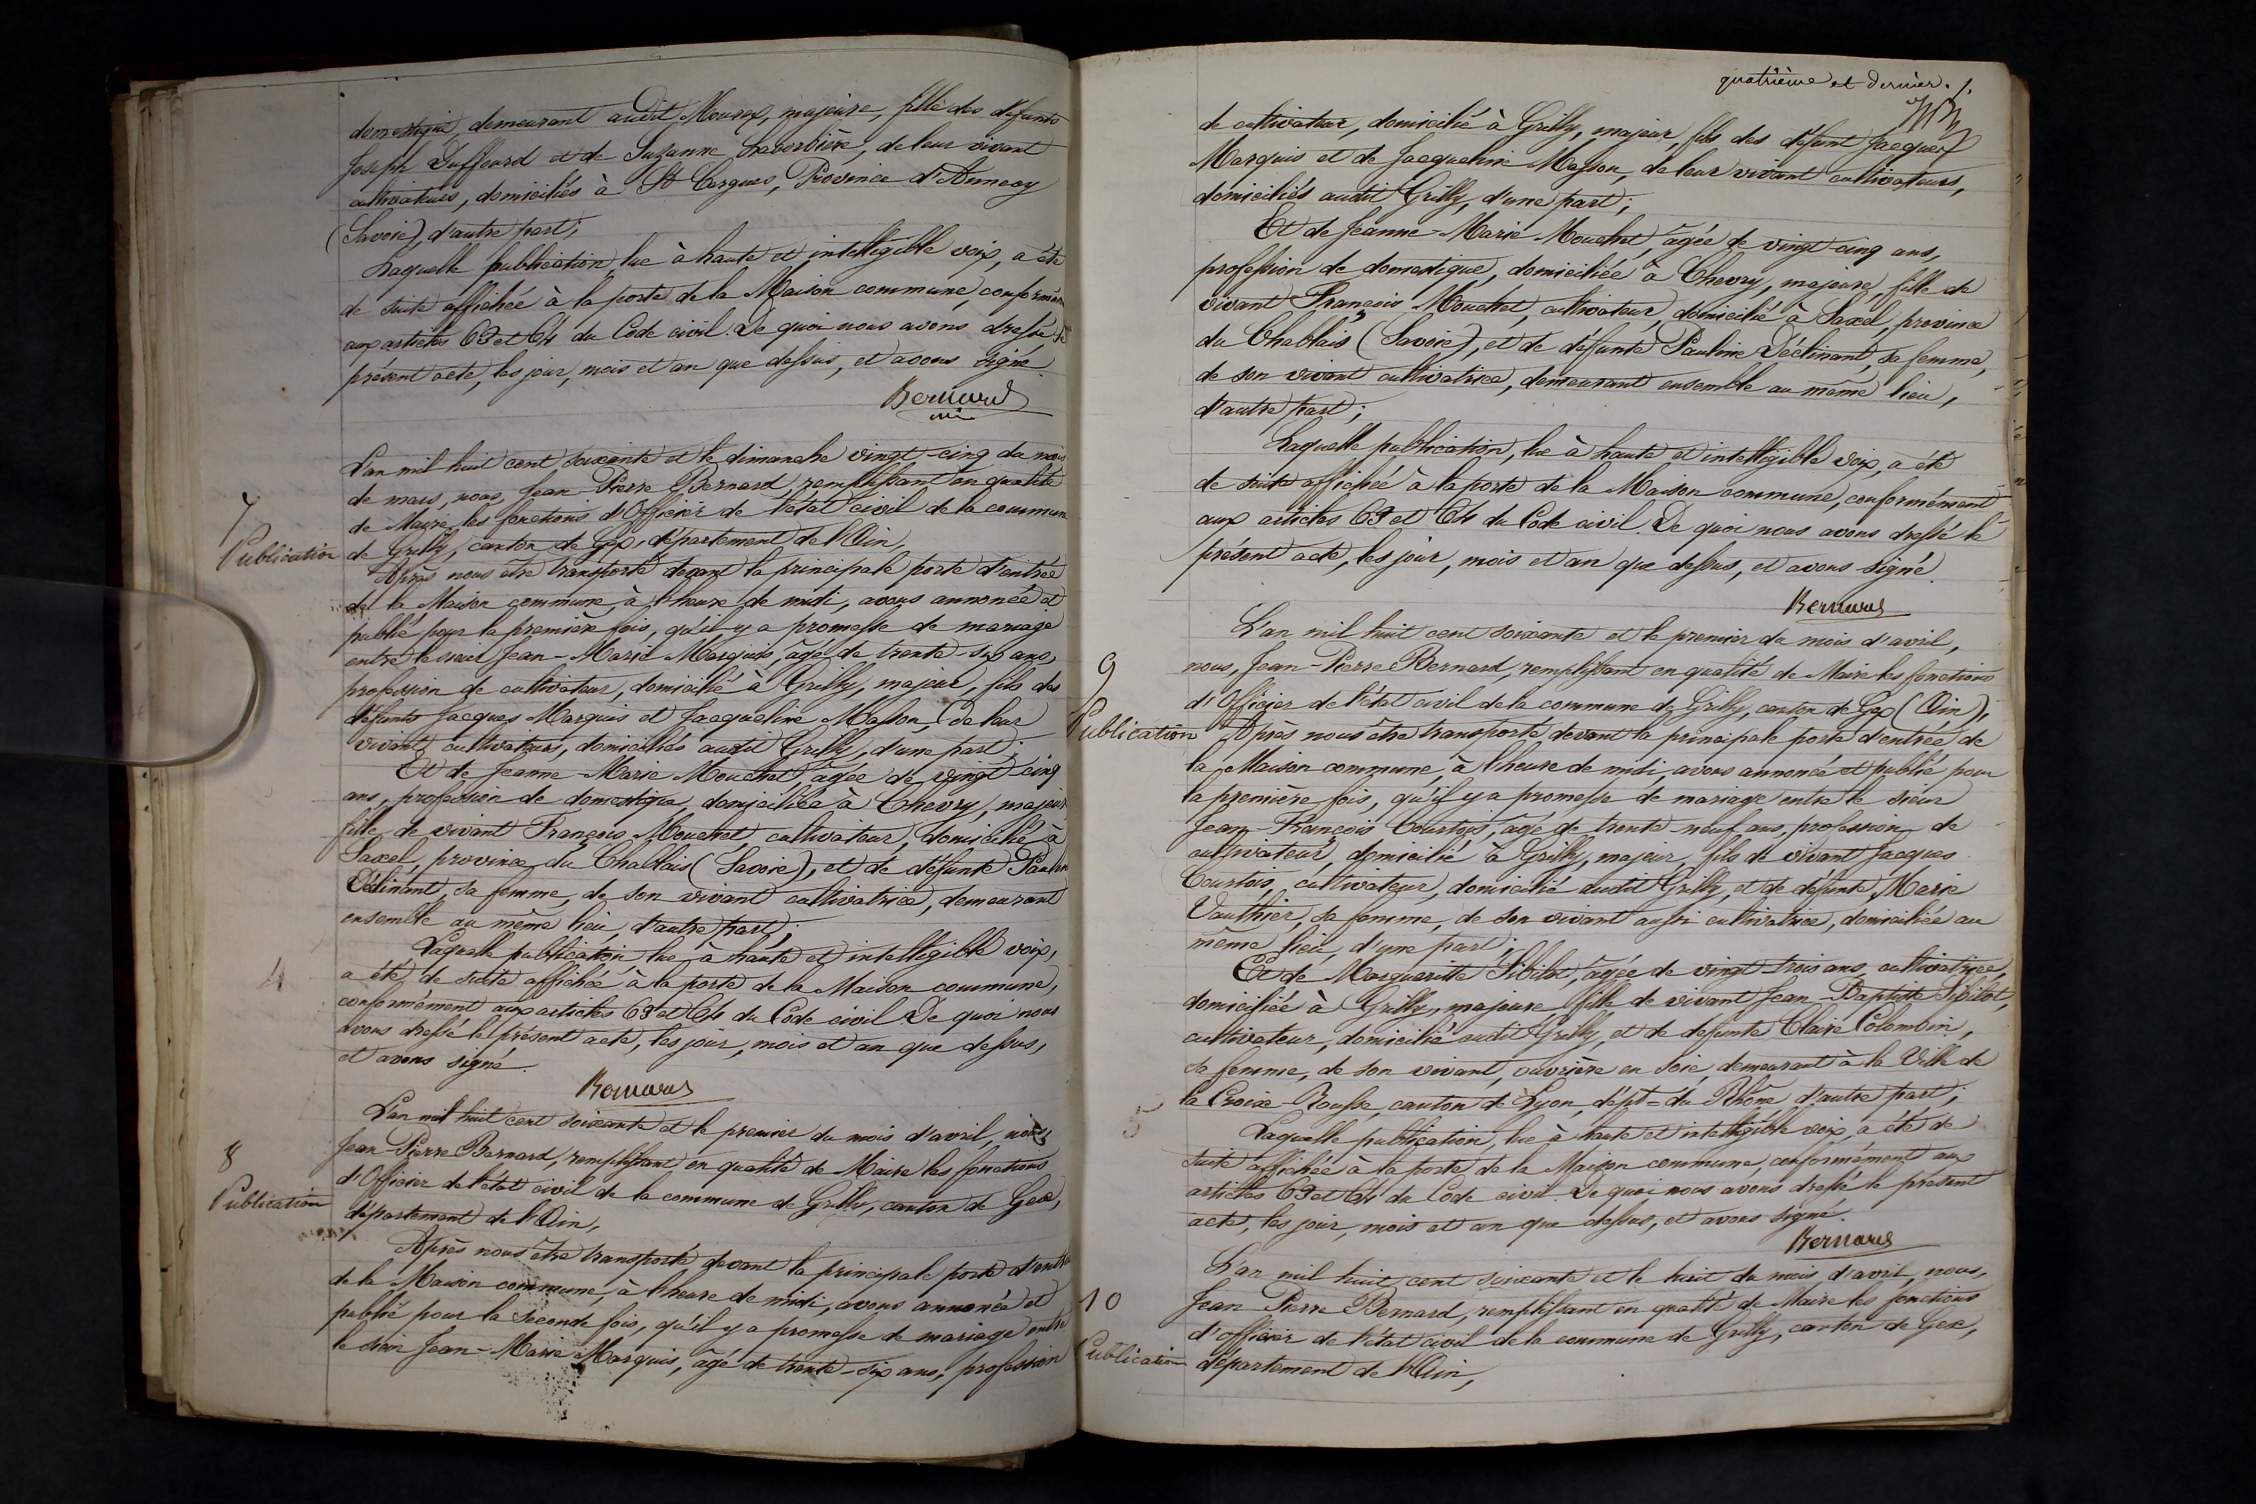 domestique, demeurant audit Mourex, majeure, fille des défunts
Joseph Duffourd et de Suzanne Laverrière, de leur vivant
cultivateurs, domiciliés à St Cergues, Province d'Annecy
(Savoie), d'autre part;
Laquelle publication, lue à haute et intelligible voix, a été
de suite affichée à la porte de la Maison commune, conformém
aux articles 63 et 64 du Code civil. De quoi nous avons dressé le
présent acte, les jour, mois et an que dessus, et avons signé.
Bernard
7
Publication
L'an mil huit cent soixante et le dimanche vingt-cinq du mois
de mars, nous, Jean-Pierre Bernard, remplissant en qualité
de Maire les fonctions d'Officier de l'état civil de la commune
de Grilly, canton de Gex, département de l'Ain,
Après nous être transporté devant la principale porte d'entrée
de la Maison commune, à l'heure de midi, avons annoncé et
publié pour la première fois, qu'il y a promesse de mariage
entre le sieur Jean-Marie Marquis, âgé de trente-six ans,
profession de cultivateur, domicilié à Grilly, majeur, fils des
défunts Jacques Marquis et Jacqueline Masson, de leur
vivant cultivateurs, domiciliés audit Grilly, d'une part;
Et de Jeanne-Marie Mouchet, âgée de vingt-cinq
ans, profession de domestique, domiciliée à Chevry, majeure
fille de vivant François Mouchet, cultivateur, domicilié à
Saxel, province du Chablais (Savoie), et de défunte Paulin
Déclinant, sa femme, de son vivant cultivatrice, demeurant
ensemble au même lieu, d'autre part;
4
Laquelle publication, lue à haute et intelligible voix,
a été de suite affichée à la porte de la Maison commune,
conformément aux articles 63 et 64 du Code civil. De quoi nous
avons dressé le présent acte, les jour, mois et an que dessus,
et avons signé.
Bernard
8
Publication
L'an mil huit cent soixante et le premier du mois d'avril, nous
Jean-Pierre Bernard, remplissant en qualité de Maire les fonctions
d'Officier de l'état civil de la commune de Grilly, canton de Gex,
département de l'Ain,
Après nous être transporté devant la principale porte d'entrée
de la Maison commune, à l'heure de midi, avons annoncé et
publié pour la seconde fois, qu'il y a promesse de mariage entre
le sieur Jean-Marie Marquis, âgé de trente-six ans, profession
quatrième et dernier.
de cultivateur, domicilié à Grilly, majeur, fils des défunt Jacques
Marquis et de Jacqueline Masson, de leur vivant cultivateurs,
domiciliés audit Grilly, d'une part;
Et de Jeanne-Marie Mouchet, âgée de vingt-cinq ans,
profession de domestique, domiciliée à Chevry, majeure, fille de
vivant François Mouchet, cultivateur, domicilié à Saxel, province
du Chablais (Savoie), et de défunte Pauline Déclinant, sa femme,
de son vivant cultivatrice, demeurant ensemble au même lieu,
d'autre part;
Laquelle publication, lue à haute et intelligible voix, a été
de suite affichée à la porte de la Maison commune, conformément
aux articles 63 et 64 du Code civil. De quoi nous avons dressé le
présent acte, les jour, mois et an que dessus, et avons signé.
Bernard
9
Publication
L'an mil huit cent soixante et le premier du mois d'avril,
nous, Jean-Pierre Bernard, remplissant en qualité de Maire les fonctions
d'Officier de l'état civil de la commune de Grilly, canton de Gex (Ain),
Après nous être transporté devant la principale porte d'entrée de
la Maison commune, à l'heure de midi, avons annoncé et publié pour
la première fois, qu'il y a promesse de mariage entre le sieur
Jean-François Courtois, âgé de trente-neuf ans, profession de
cultivateur, domicilié à Grilly, majeur, fils de vivant Jacques
Courtois, cultivateur, domicilié audit Grilly, et de défunte Marie
Vauthier, sa femme, de son vivant aussi cultivatrice, domiciliée au
même lieu, d'une part;
Et de Marguerite Sibilot, âgée de vingt-trois ans, cultivatrice,
domiciliée à Grilly, majeure, fille de vivant Jean-Baptiste Sibilot,
cultivateur, domicilié audit Grilly, et de défunte Claire Colombin,
sa femme, de son vivant, ouvrière en soie, demeurant à la Ville de
la Croix-Rousse, canton de Lyon, dépt = du Rhône d'autre part;
5
Laquelle publication, lue à haute et intelligible voix, a été de
suite affichée à la porte de la Maison commune, conformément aux
articles 63 et 64 du Code civil. De quoi nous avons dressé le présent
acte, les jour, mois et an que dessus, et avons signé.
Bernard
10
Publication
L'an mil huit cent soixante et le huit du mois d'avril, nous,
Jean Pierre Bernard, remplissant en qualité de Maire les fonctions
d'officier de l'état civil de la commune de Grilly, canton de Gex,
département de l'Ain,